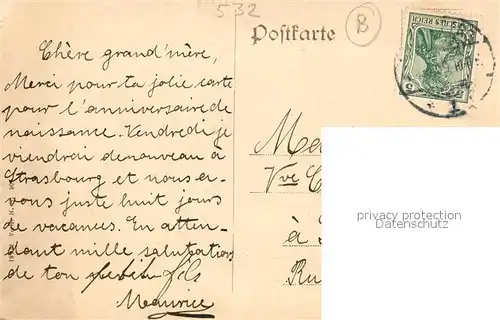 532
B
Postkarte
SCHES REICH
Chère grand'mère,
Merci pour ta jolie carte
pour l'anniversaire de
naissance. Vendredi je
viendrai de nouveau à
Strasbourg et nous a-
vons juste huit jours
de vacances. En atten-
dant mille salutations
de ton petit fils
Maurice
Ma
Vve C
à
Ru
privacy protection
Datenschutz